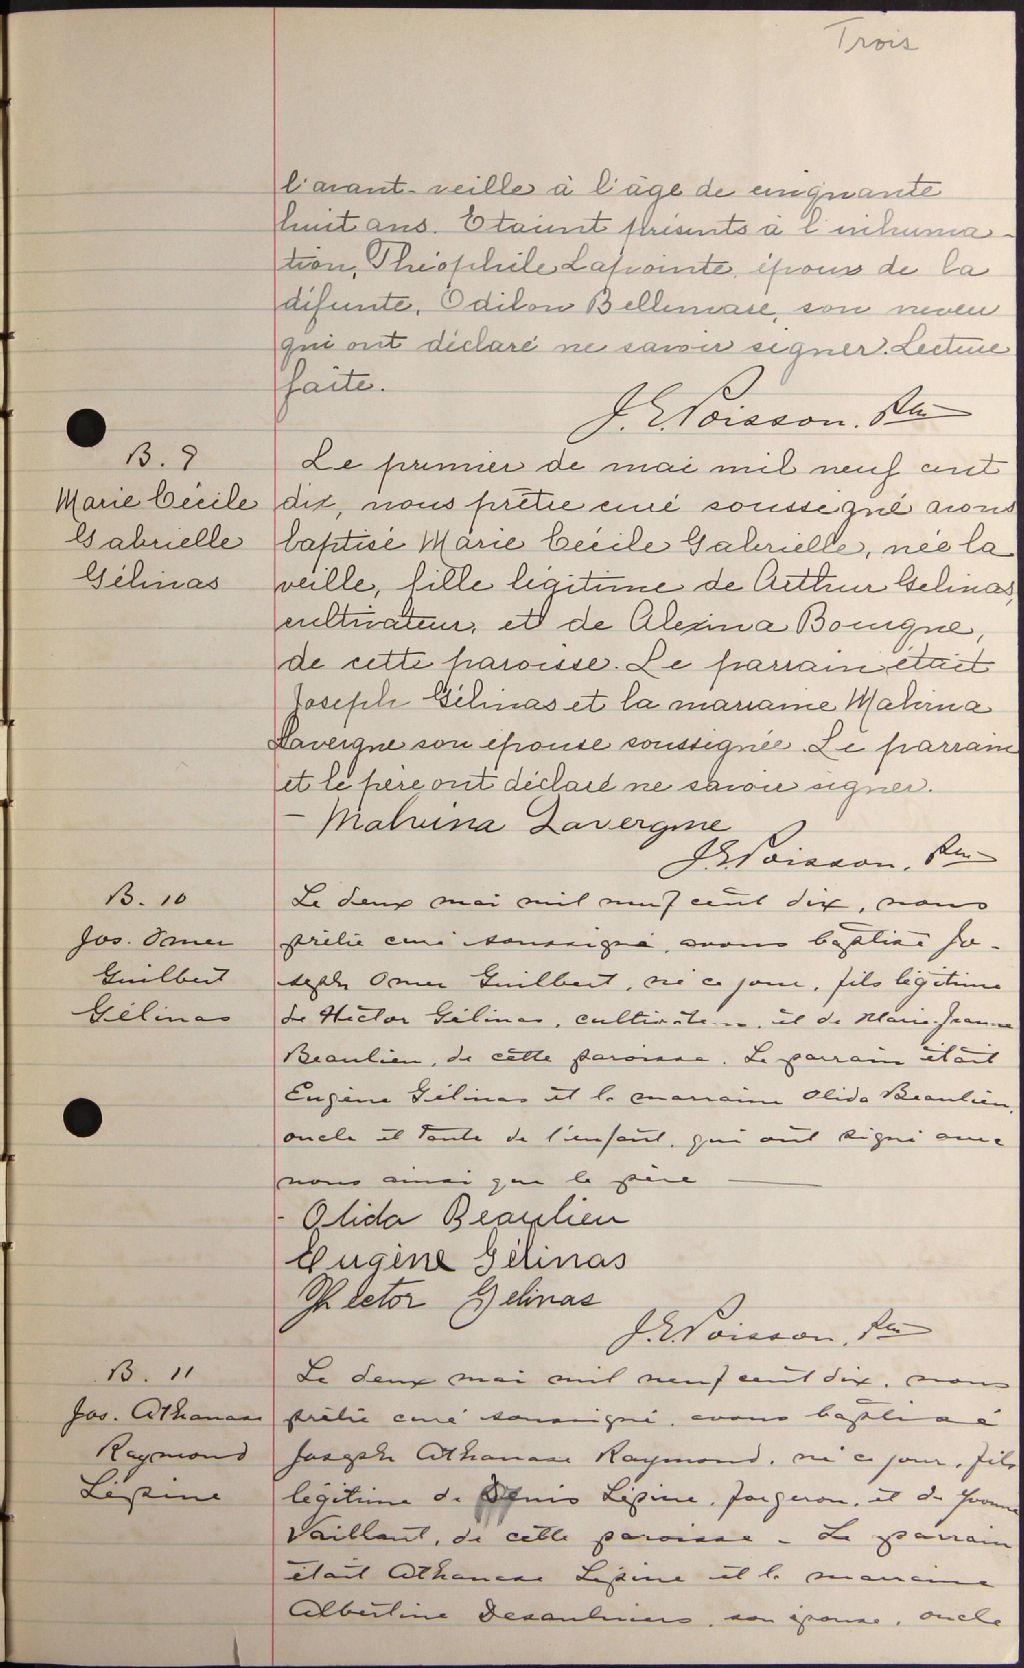 Trois
l'avant-veille à l'âge de cinquante
huit ans. Etaient présents à l'inhuma-
tion, Théophile Lapointe, époux de la
défunte, Odilon Bellemare, son neveu
qui ont déclaré ne savoir signer. Lecture
faite.
J. E. Poisson. Ptre
B. 9
Marie Cécile
Gabrielle
Gélinas
Le premier de mai mil neuf cent
dix, nous prêtre curé soussigné avons
baptisé Marie Cécile Gabrielle, née la
veille, fille légitime de Arthur Gelinas,
cultivateur, et de Alexina Bourgne,
de cette paroisse. Le parrain était
Joseph Gélinas et la marraine Malvina
Lavergne son épouse soussignée. Le parrain
et le père ont déclaré ne savoir signer.
- Malvina Lavergne
J. E. Poisson, Ptre
B. 10
Jos. Omer
Guilbert
Gélinas
Le deux mai mil neuf cent dix, nous
prêtre curé soussigné, avons baptisé Jo-
seph Omer Guilbert, né ce jour, fils légitime
de Hector Gélinas, cultivateur, et de Marie-Jeanne
Beaulieu, de cette paroisse. Le parrain était
Eugène Gélinas et la marraine Olida Beaulieu,
oncle et tante de l'enfant, qui ont signé avec
nous ainsi que le père —
- Olida Beaulieu
Eugène Gélinas
Hector Gelinas
J. E. Poisson, Ptre
B. 11
Jos. Athanase
Raymond
Lépine
Le deux mai mil neuf cent dix, nous
prêtre curé soussigné, avons baptisé
Joseph Athanase Raymond, né ce jour, fils
légitime de Denis Lépine, forgeron, et de Yvonne
Vaillant, de cette paroisse - Le parrain
était Athanase Lépine et la marraine
Albertine Desaulniers, son épouse, oncle